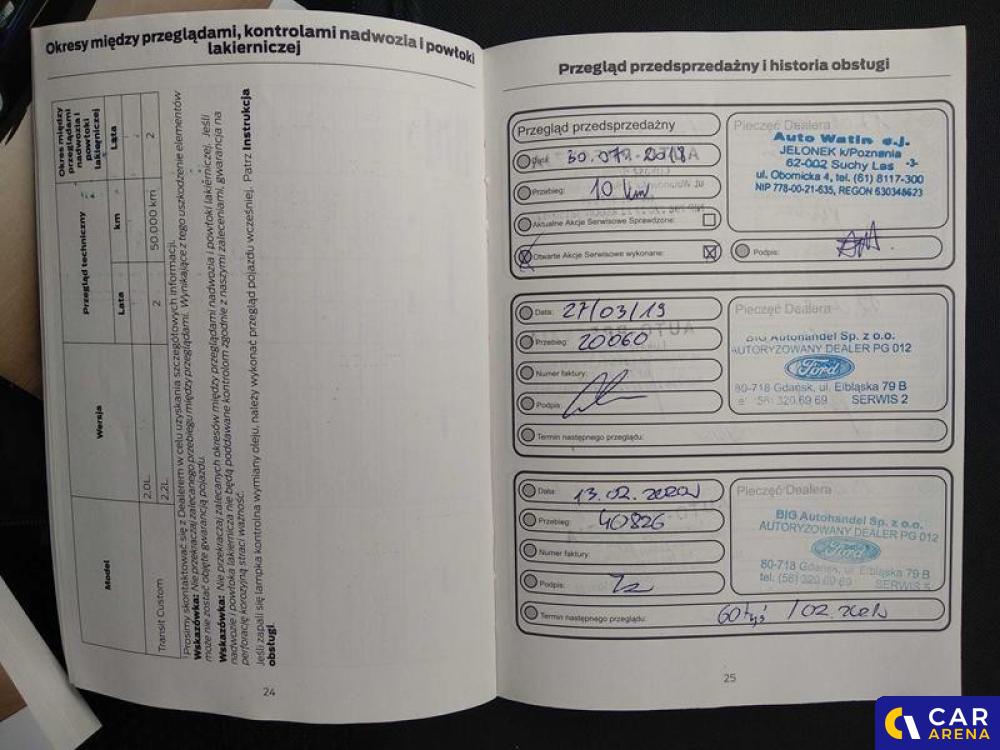 Okresy między przeglądami, kontrolami nadwozia i powłoki
lakierniczej
Model
Wersja
Przegląd techniczny
Okres między
przeglądami
nadwozia i
powłoki
lakierniczej
Lata
km
Lata
Transit Custom
2.0L
2
50.000 km
2
2.2L
Prosimy skontaktować się z Dealerem w celu uzyskania szczegółowych informacji.
Wskazówka: Nie przekraczaj zalecanego przebiegu między przeglądami. Wynikające z tego uszkodzenie elementów
może nie zostać objęte gwarancją pojazdu.
Wskazówka: Nie przekraczaj zalecanych okresów między przeglądami nadwozia i powłoki lakierniczej. Jeśli
nadwozie i powłoka lakiernicza nie będą poddawane kontrolom zgodnie z naszymi zaleceniami, gwarancja na
perforację korozyjną straci ważność.
Jeśli zapali się lampka kontrolna wymiany oleju, należy wykonać przegląd pojazdu wcześniej. Patrz Instrukcja
obsługi.
24
Przegląd przedsprzedażny i historia obsługi
Przegląd przedsprzedażny
Pieczęć Dealera
Auto Watin s.j.
JELONEK k/Poznania -3-
62-002 Suchy Las
ul. Obornicka 4, tel. (61) 8117-300
NIP 778-00-21-635, REGON 630348623
2018
Przebieg: 10 km
Aktualne Akcje Serwisowe Sprawdzone:
Otwarte Akcje Serwisowe wykonane:
Podpis:
Data: 27/03/19
Przebieg: 20060
Numer faktury:
Podpis:
Termin następnego przeglądu:
Pieczęć Dealera
BIG Autohandel Sp. z o.o.
AUTORYZOWANY DEALER PG 012
Ford
80-718 Gdańsk, ul. Elbląska 79 B
tel. (58) 320 69 69 SERWIS 2
Data: 13.02.2020
Przebieg: 40826
Numer faktury:
Podpis:
Termin następnego przeglądu: 60 tyś / 02.2021
Pieczęć Dealera
BIG Autohandel Sp. z o.o.
AUTORYZOWANY DEALER PG 012
Ford
80-718 Gdańsk, ul. Elbląska 79 B
tel. (58) 320 69 69 SERWIS 5
25
CAR
ARENA